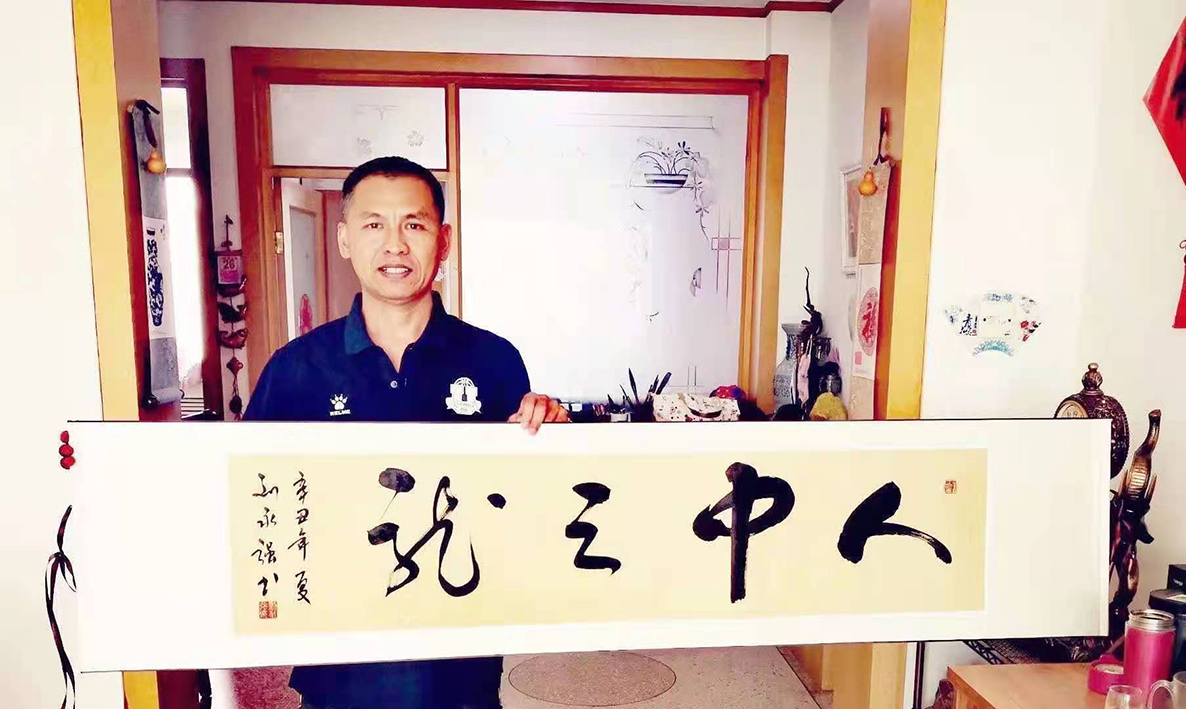 人中之龍
辛丑年夏
刘永强书
KELME
26